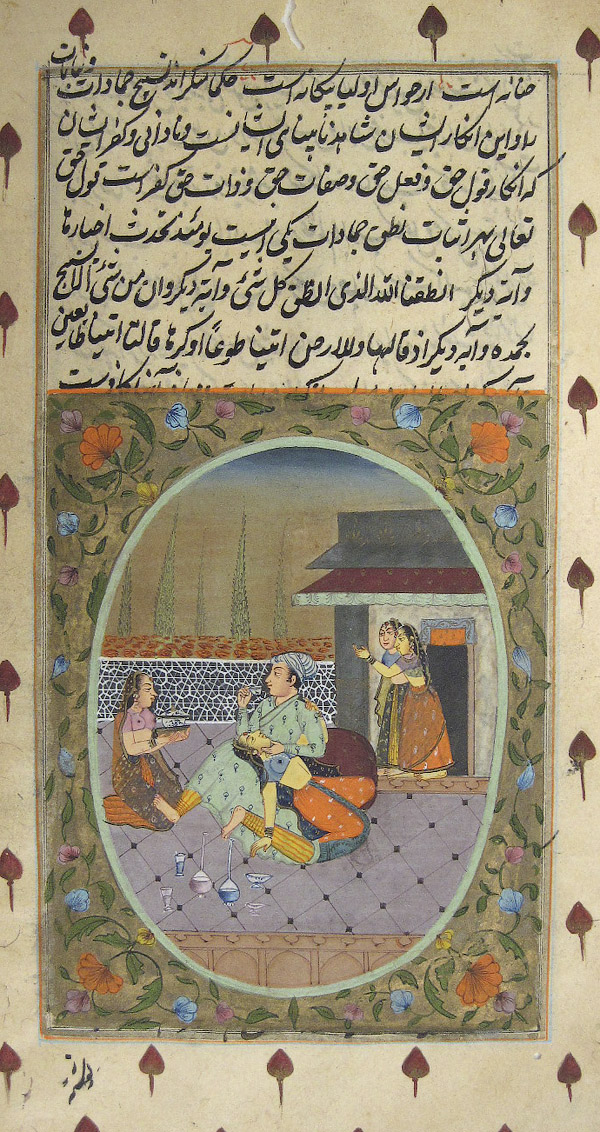 حنانه است از حواس اولیا بیکانه است حکما منکر اند تسبیح جمادات و نباتات
را و این انکار ایشان شاهد نابینای ایشانست و نادانی و کفر ایشان
که انکار قول حق و فعل حق و صفات حق و ذات حق کفر است قول حق
تعالی بهر اثبات نطق جمادات یکی اینست یومئذ تحدث اخبارها
و آیه دیکر انطقنا الله الذی انطق کل شئ و آیه دیکر وان من شئ الا یسبح
بحمده و آیه دیکر اذ قال لها وللارض اتیا طوعا او کرها قالتا اتینا طایعین